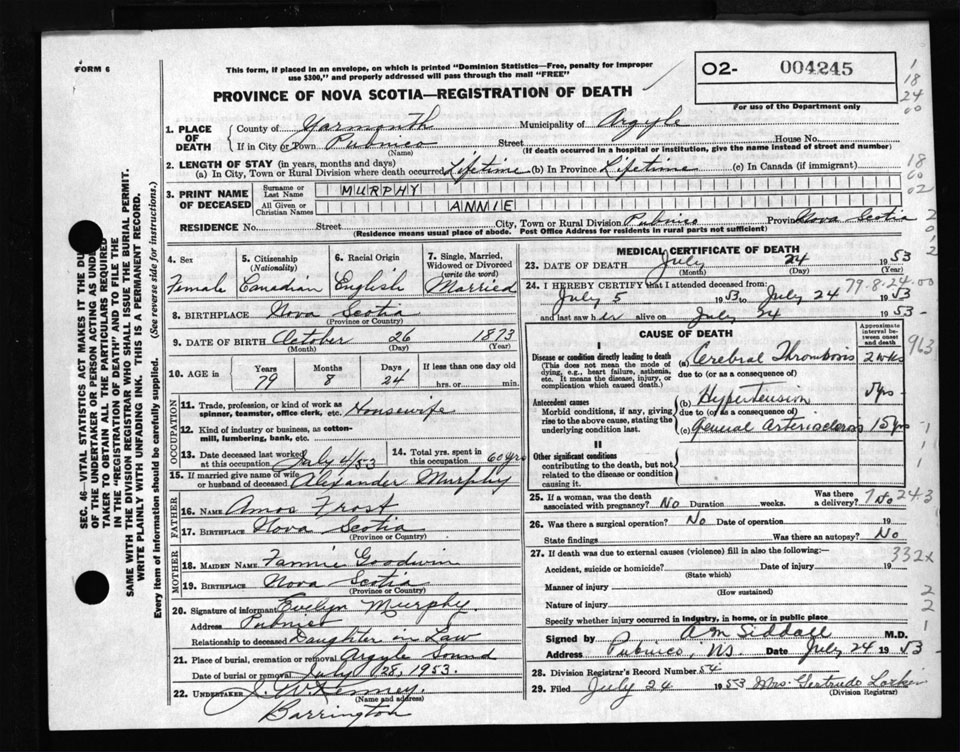 FORM 6
This form, if placed in an envelope, on which is printed "Dominion Statistics—Free, penalty for improper
use $300," and properly addressed will pass through the mail "FREE"
PROVINCE OF NOVA SCOTIA—REGISTRATION OF DEATH
O2- 004245
For use of the Department only
1
18
24
00
1. PLACE OF DEATH
County of Yarmouth Municipality of Argyle
If in City or Town Pubnico Street House No.
(Name) (If death occurred in a hospital or institution, give the name instead of street and number)
2. LENGTH OF STAY (in years, months and days)
(a) In City, Town or Rural Division where death occurred Lifetime (b) In Province Lifetime (c) In Canada (if immigrant)
18
60
02
3. PRINT NAME OF DECEASED
Surname or Last Name MURPHY
All Given or Christian Names ANNIE
RESIDENCE No. Street City, Town or Rural Division Pubnico Province Nova Scotia
(Residence means usual place of abode. Post Office Address for residents in rural parts not sufficient)
2
0
1
2
SEC. 46—VITAL STATISTICS ACT MAKES IT THE DU
OF THE UNDERTAKER OR PERSON ACTING AS UNDE
TAKER TO OBTAIN ALL THE PARTICULARS REQUIRED
IN THE "REGISTRATION OF DEATH" AND TO FILE THE
SAME WITH THE DIVISION REGISTRAR WHO SHALL ISSUE THE BURIAL PERMIT.
WRITE PLAINLY WITH UNFADING INK. THIS IS A PERMANENT RECORD.
Every item of information should be carefully supplied. (See reverse side for instructions.)
4. Sex
Female
5. Citizenship
(Nationality)
Canadian
6. Racial Origin
English
7. Single, Married,
Widowed or Divorced
(write the word)
Married
8. BIRTHPLACE Nova Scotia
(Province or Country)
9. DATE OF BIRTH October 26 1873
(Month) (Day) (Year)
10. AGE in Years Months Days If less than one day old
79 8 24 hrs. or min.
OCCUPATION
11. Trade, profession, or kind of work as
spinner, teamster, office clerk, etc. Housewife
12. Kind of industry or business, as cotton-
mill, lumbering, bank, etc.
13. Date deceased last worked
at this occupation July 4/53
14. Total yrs. spent in
this occupation 60 yrs
15. If married give name of wife
or husband of deceased Alexander Murphy
FATHER
16. NAME Amos Frost
17. BIRTHPLACE Nova Scotia
(Province or Country)
MOTHER
18. MAIDEN NAME Fannie Goodwin
19. BIRTHPLACE Nova Scotia
(Province or Country)
20. Signature of informant Evelyn Murphy
Address Pubnico
Relationship to deceased Daughter in Law
21. Place of burial, cremation or removal Argyle Sound
Date of burial or removal July 28, 1953.
22. UNDERTAKER J. McKenney
(Name and address)
Barrington
MEDICAL CERTIFICATE OF DEATH
23. DATE OF DEATH July 24 1953
(Month) (Day) (Year)
24. I HEREBY CERTIFY that I attended deceased from: 79-8-24-00
July 5 1953 to July 24 1953
and last saw her alive on July 24 1953
CAUSE OF DEATH
Approximate interval between onset and death
963
I
Disease or condition directly leading to death
(This does not mean the mode of
dying, e.g., heart failure, asthenia,
etc. It means the disease, injury, or
complication which caused death.)
(a) Cerebral Thrombosis 2 wks
due to (or as a consequence of)
Antecedent causes
Morbid conditions, if any, giving
rise to the above cause, stating the
underlying condition last.
(b) Hypertension 5 yrs
due to (or as a consequence of)
(c) General Arteriosclerosis 15 yrs
II
Other significant conditions
contributing to the death, but not
related to the disease or condition
causing it.
25. If a woman, was the death
associated with pregnancy? No Duration weeks. Was there
a delivery? No
243
26. Was there a surgical operation? No Date of operation 19
State findings Was there an autopsy? No
27. If death was due to external causes (violence) fill in also the following:—
332x
Accident, suicide or homicide? Date of injury 19
(State which)
Manner of injury
(How sustained)
Nature of injury
Specify whether injury occurred in industry, in home, or in public place
2
2
1
Signed by AM Siddall M.D.
Address Pubnico, N.S. Date July 24 1953
28. Division Registrar's Record Number 54
29. Filed July 24 1953 Mrs. Gertrude
(Division Registrar)